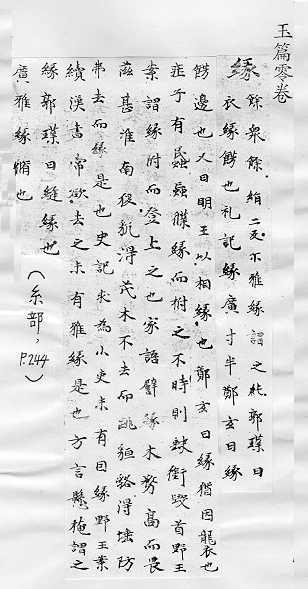 玉篇零卷
緣 餘眾餘絹二反尒雅緣謂之純郭璞曰
衣緣餝也礼記緣廣寸半鄭玄曰緣
餝邊也又曰明王以相緣也鄭玄曰緣猶因襲也
庄子有緣而柎之不時則缺銜毀首野王
案謂緣附而登上之也家語譬緣木務高而畏
茲甚淮南得茂木不去而貉得埵防
弗去而緣是也史記求為小吏未有因緣野王案
續漢書常欲去之未有雅緣是也方言懸裺謂之
緣郭璞曰縫緣也
廣雅緣循也
(糸部, P.244)